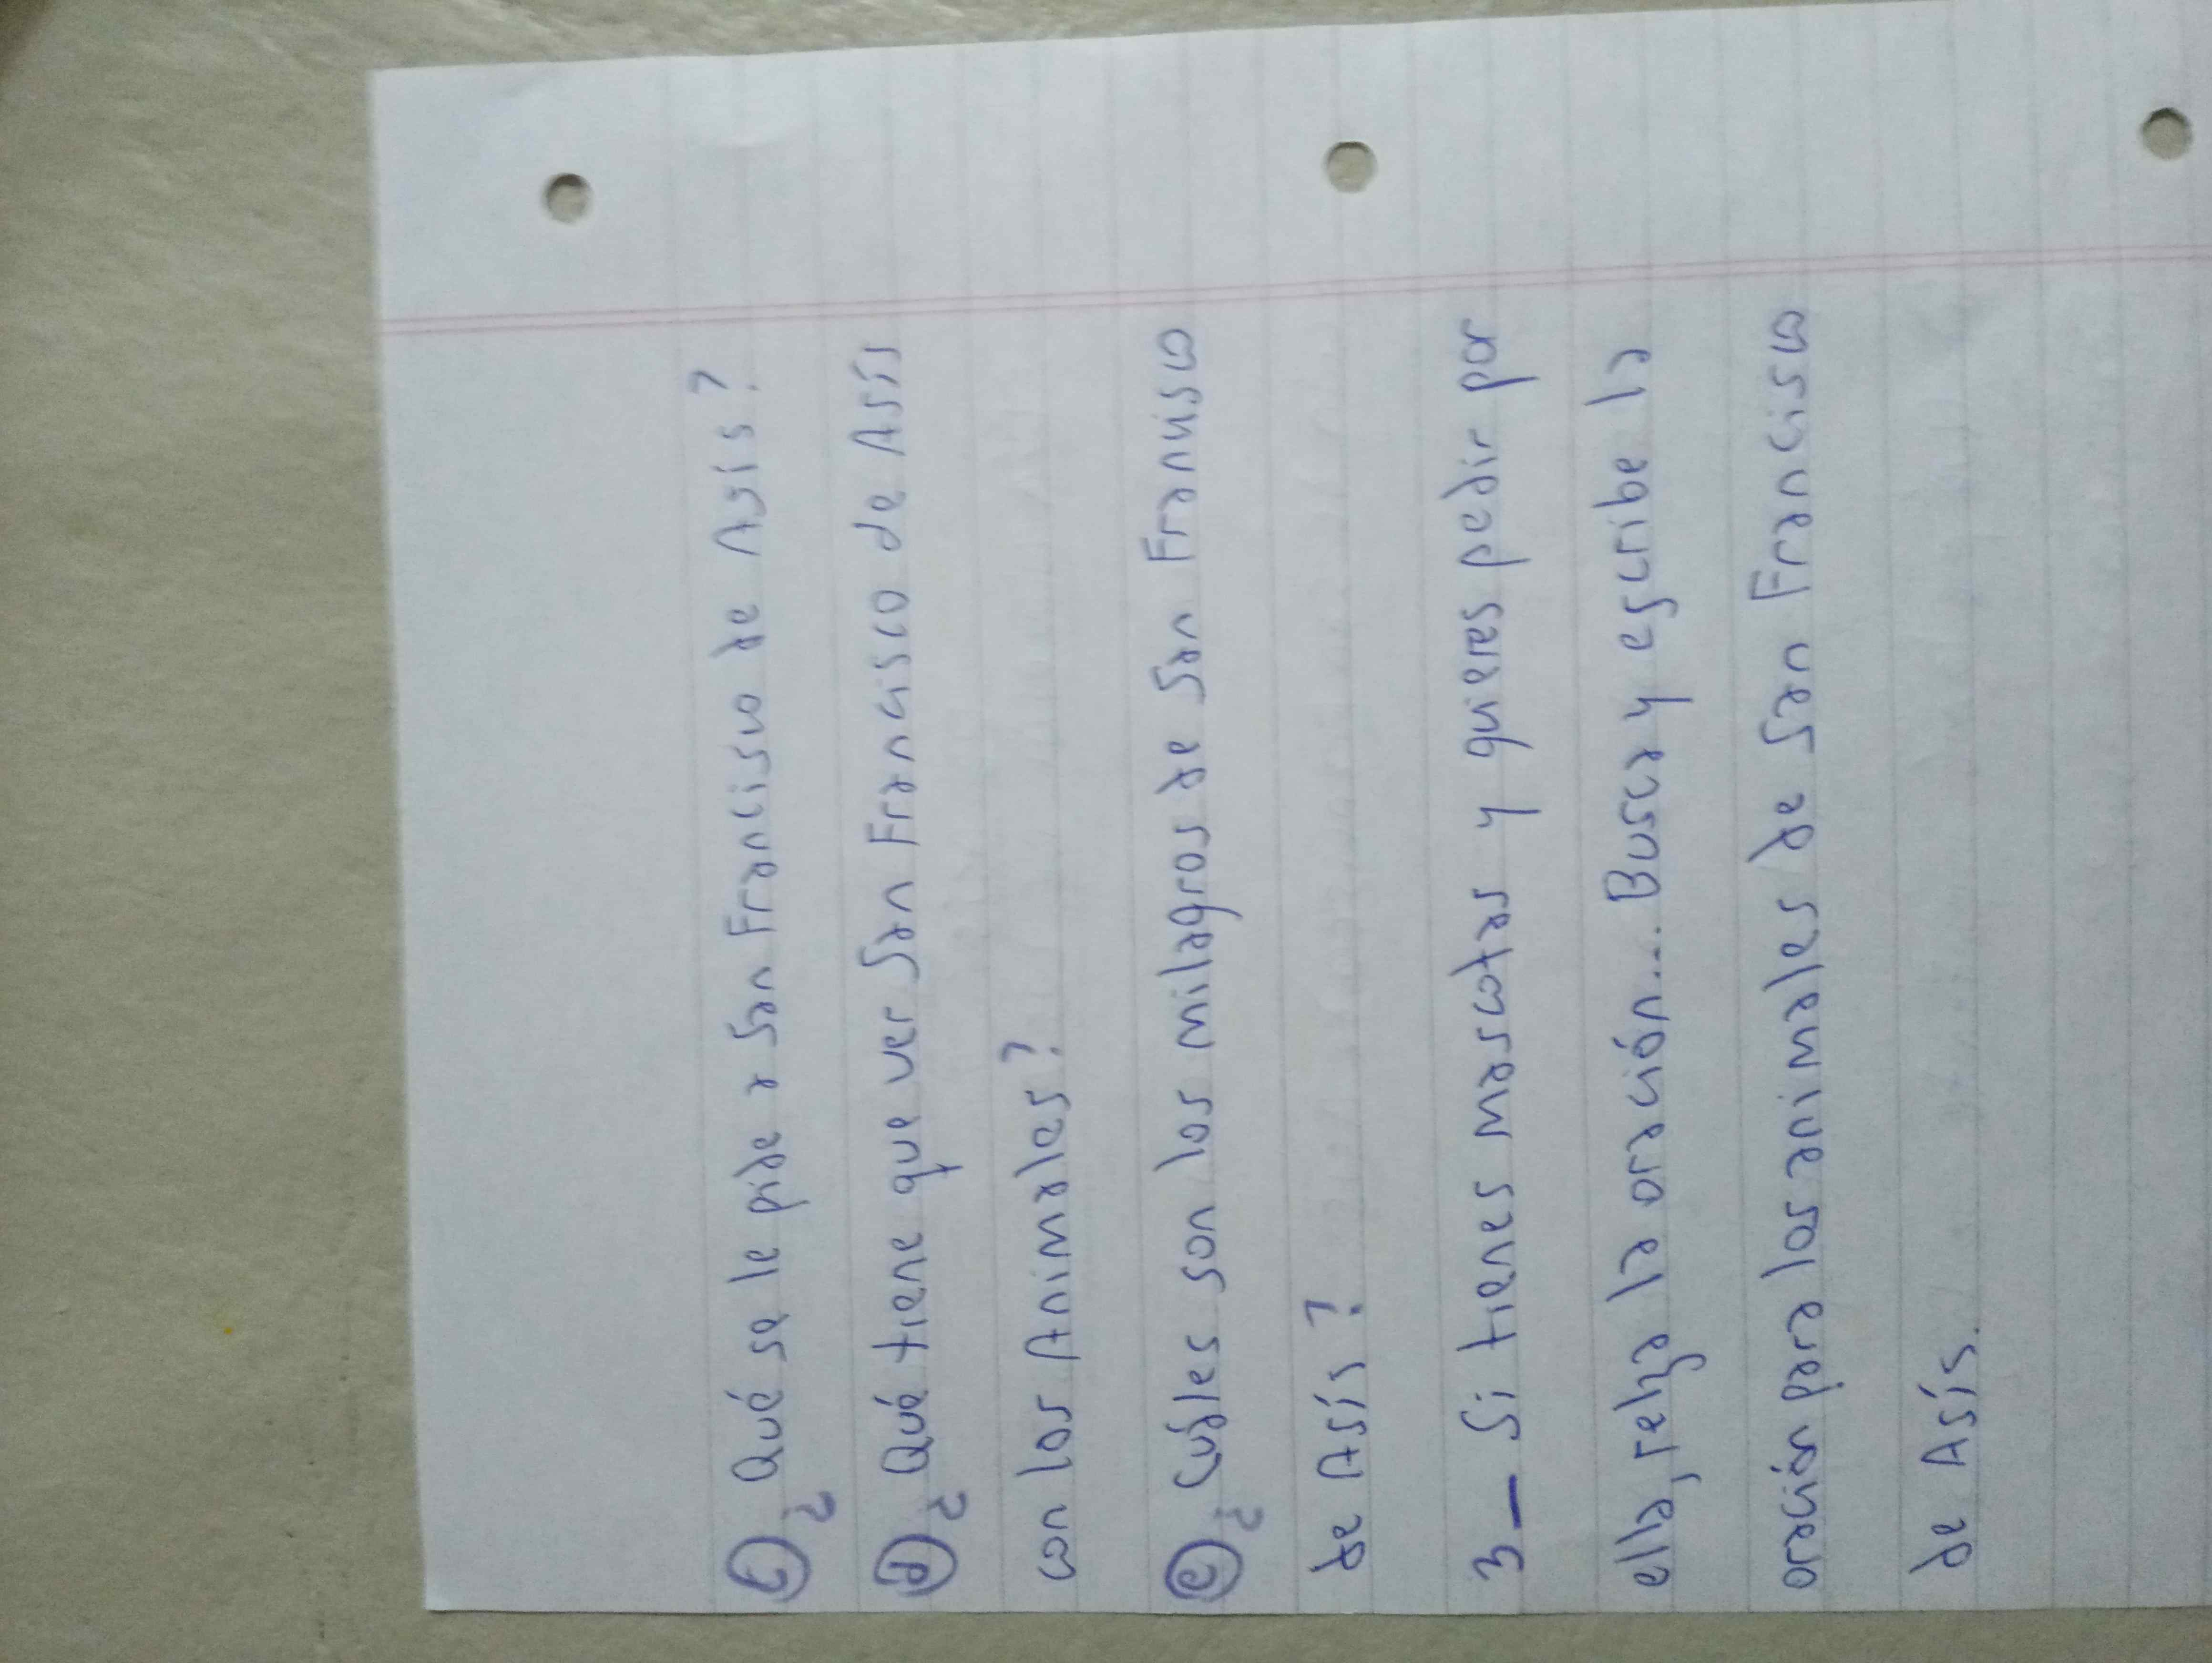 c) ¿Qué se le pide a San Francisco de Asís?
d) ¿Qué tiene que ver San Francisco de Asís
con los Animales?
e) ¿Cuáles son los milagros de San Francisco
de Asís?
3_ Si tienes mascotas y quieres pedir por
ella, reza la oración... Busca y escribe la
oración para los animales de San Francisco
de Asís.